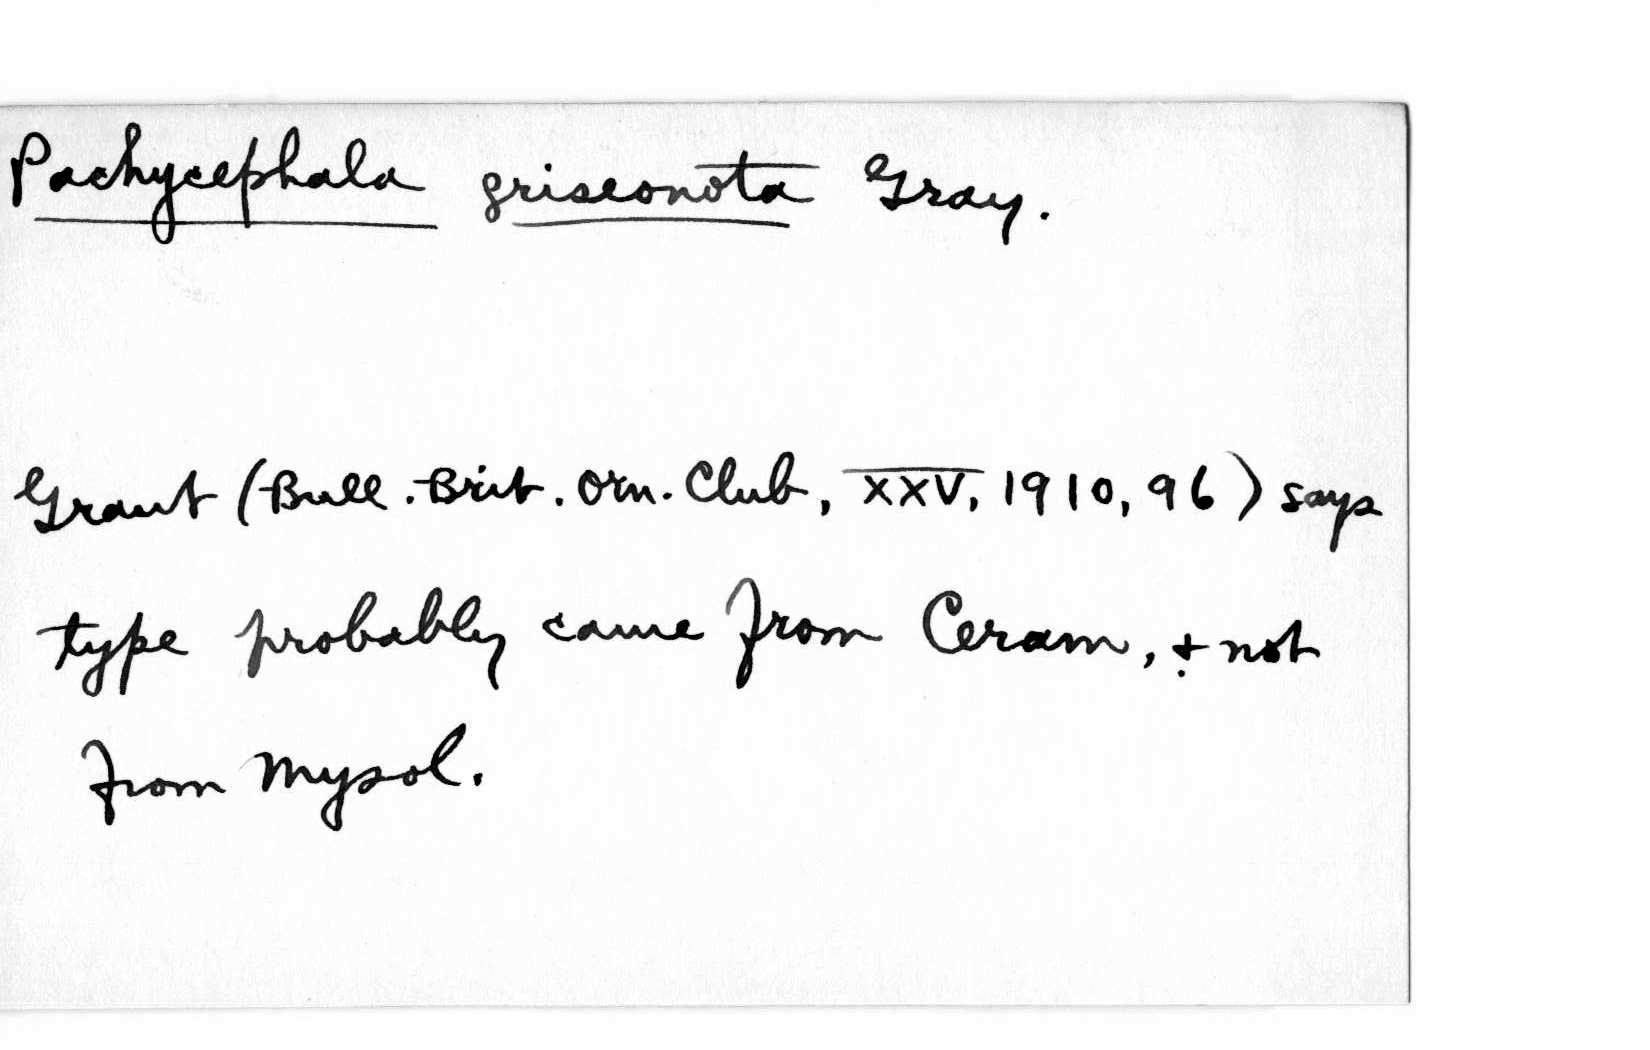 Pachycephala griseonota Gray.
Grant (Bull. Brit. Orn. Club, XXV, 1910, 96) says
type probably came from Ceram, & not
from Mysol.